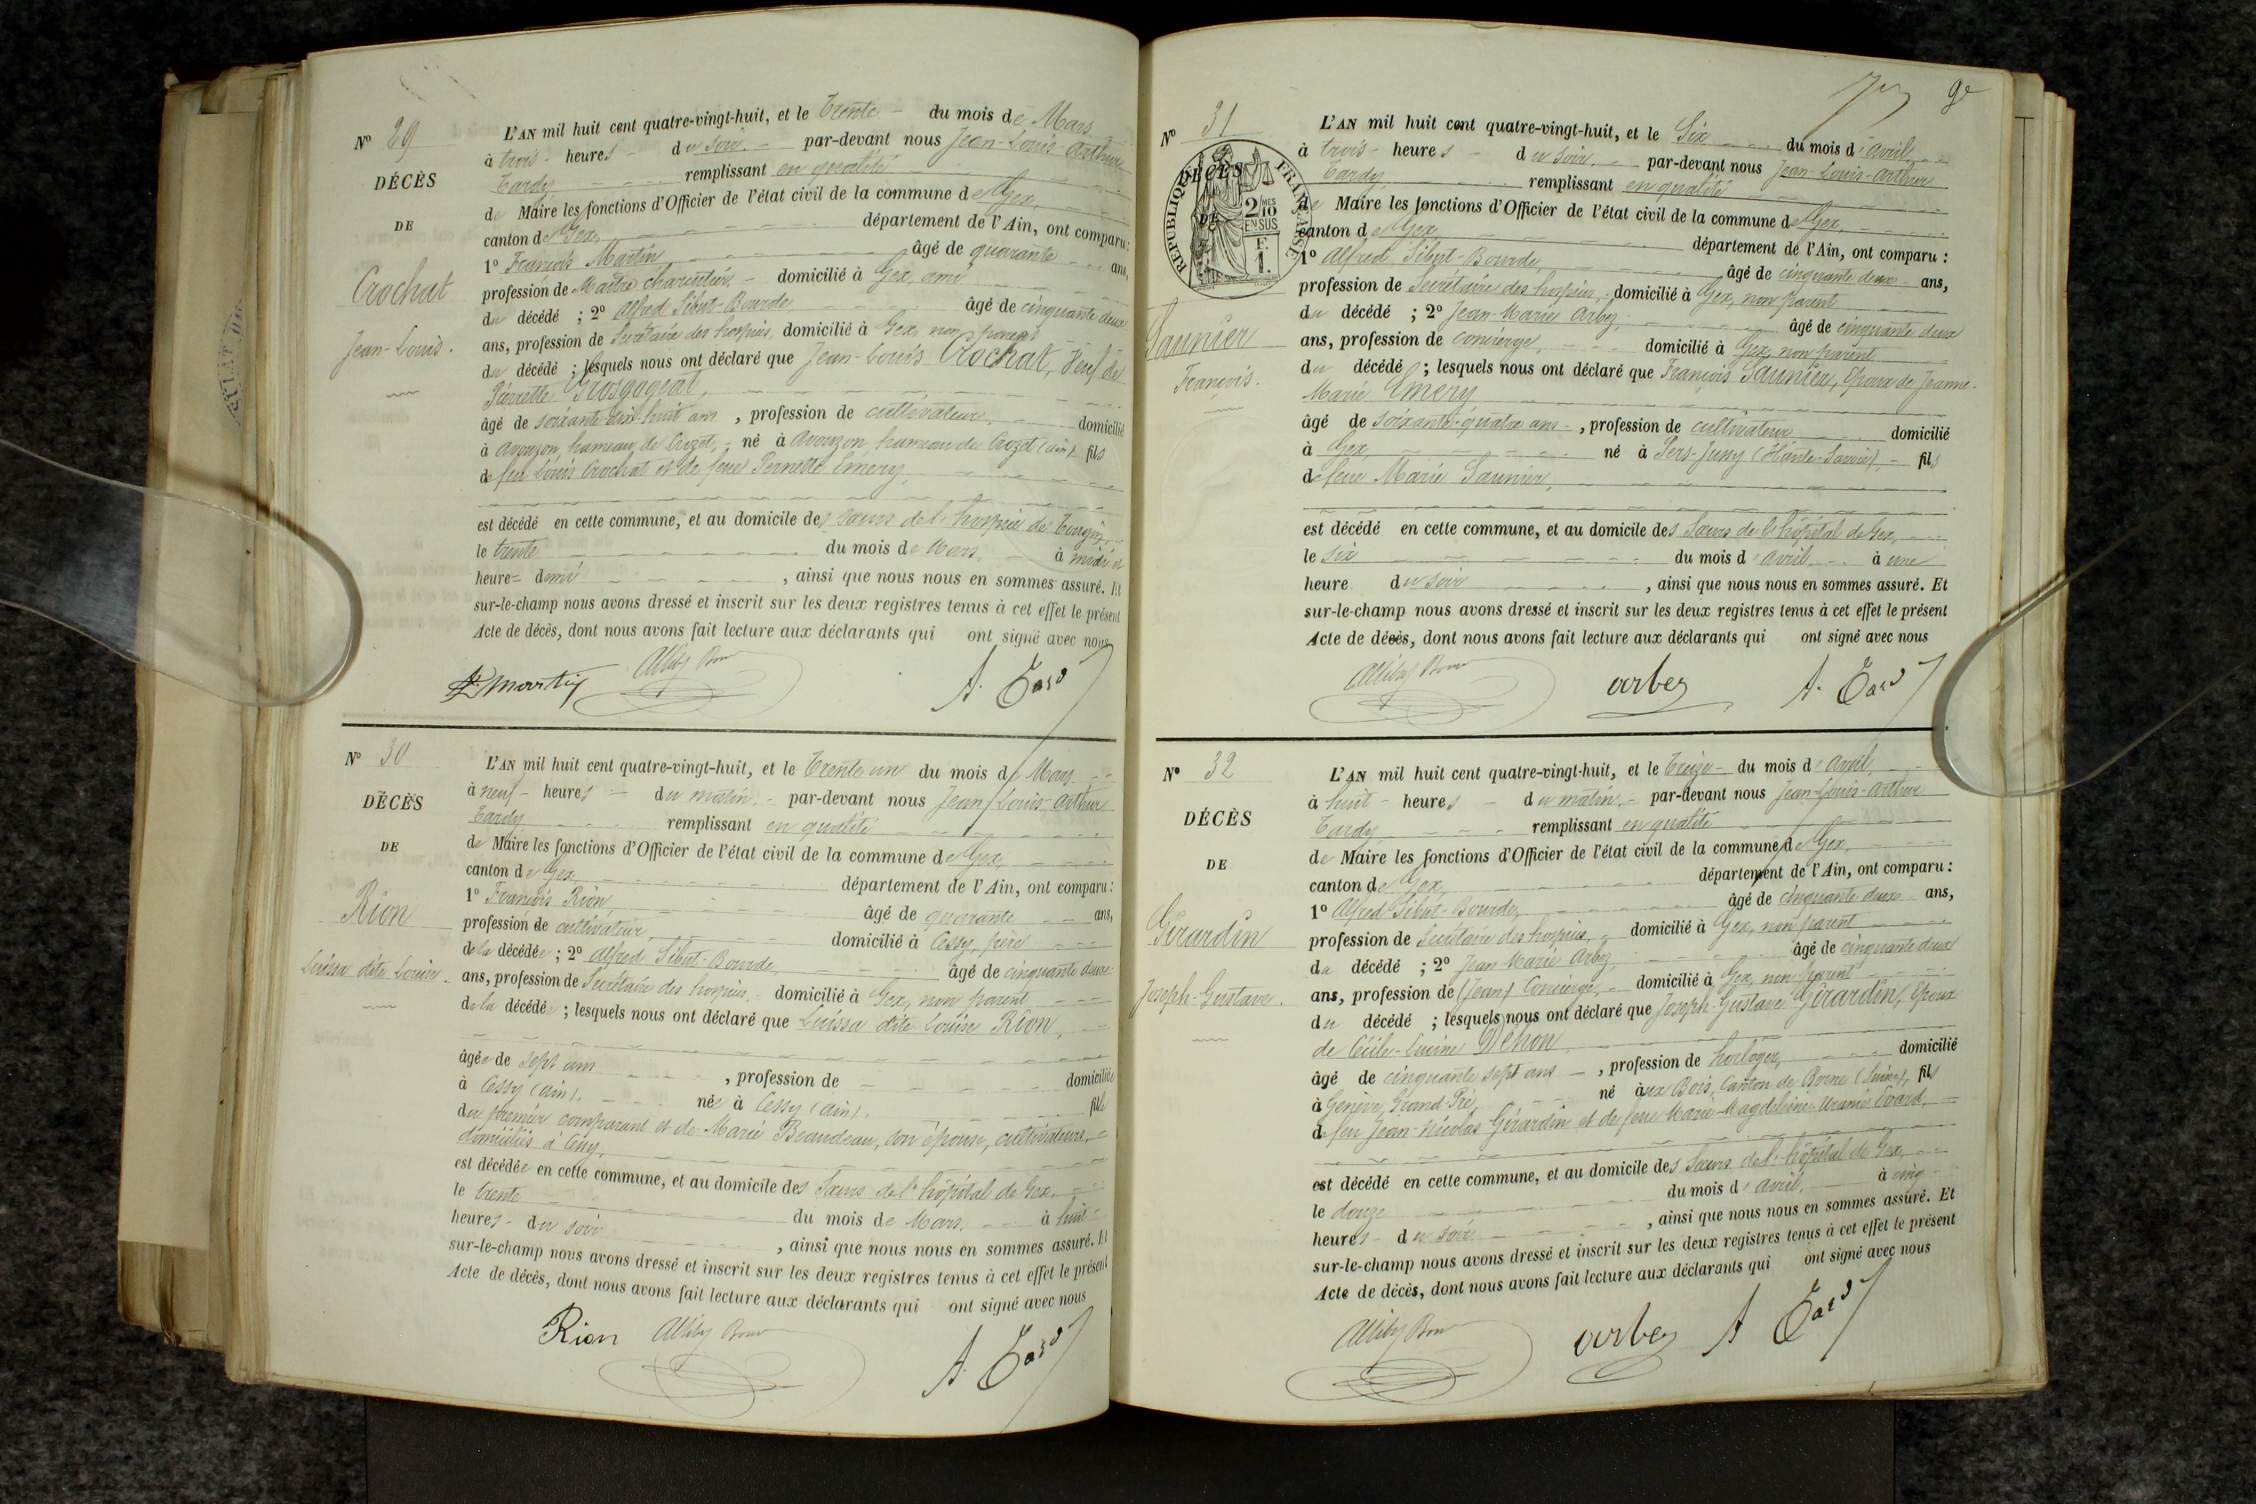 Nº 29
DÉCÈS
DE
Crochat
Jean-Louis.
L'AN mil huit cent quatre-vingt-huit, et le Trente du mois de Mars
à trois heures du soir. par-devant nous Jean-Louis-Arthur
Tardy remplissant en qualité
de Maire les fonctions d'Officier de l'état civil de la commune de Gex,
canton de Gex, département de l'Ain, ont comparu:
1º François Martin âgé de quarante ans,
profession de Maître charcutier domicilié à Gex, ami
du décédé ; 2º Alfred Sibut-Bourde, âgé de cinquante deux
ans, profession de Secrétaire des hospices, domicilié à Gex, non parent
du décédé ; lesquels nous ont déclaré que Jean-Louis Crochat, Veuf de
Pierrette Grosgogeat,
âgé de soixante dix-huit ans , profession de cultivateur, domicilié
à Avouzon, hameau de Crozet, né à Avouzon hameau de Crozet (Ain) fils
de feu Louis Crochat et de feue Pernette Eméry,
est décédé en cette commune, et au domicile des soeurs de l'hospice de Tougin,
le trente du mois de Mars, à midi et
heure demi , ainsi que nous nous en sommes assuré. Et
sur-le-champ nous avons dressé et inscrit sur les deux registres tenus à cet effet le présent
Acte de décès, dont nous avons fait lecture aux déclarants qui ont signé avec nous
F. Martin A. Tardy
Nº 30
DÉCÈS
DE
Rion
Luissa dite Louise.
L'AN mil huit cent quatre-vingt-huit, et le Trente un du mois de Mars
à neuf heures du matin, par-devant nous Jean-Louis-Arthur
Tardy remplissant en qualité
de Maire les fonctions d'Officier de l'état civil de la commune de Gex,
canton de Gex, département de l'Ain, ont comparu:
1º François Rion âgé de quarante ans,
profession de cultivateur, domicilié à Cessy, père
de la décédée ; 2º Alfred Sibut-Bourde, âgé de cinquante deux
ans, profession de Secrétaire des hospices, domicilié à Gex, non parent
de la décédée ; lesquels nous ont déclaré que Luissa dite Louise Rion,
âgée de sept ans , profession de domiciliée
à Cessy (Ain). née à Cessy (Ain). fille
du premier comparant et de Marie Beaudeau, son épouse, cultivateurs,
domiciliés à Cessy,
est décédée en cette commune, et au domicile des Soeurs de l'hôpital de Gex,
le trente du mois de Mars, à huit
heures du soir , ainsi que nous nous en sommes assuré. Et
sur-le-champ nous avons dressé et inscrit sur les deux registres tenus à cet effet le présent
Acte de décès, dont nous avons fait lecture aux déclarants qui ont signé avec nous
Rion A. Tardy
Nº 31
DÉCÈS
DE
RÉPUBLIQUE FRANÇAISE
2/10MES
EN SUS
F.
1.
Saunier
François.
L'AN mil huit cent quatre-vingt-huit, et le Six du mois d'avril,
à trois heures du soir. par-devant nous Jean-Louis-Arthur
Tardy, remplissant en qualité
de Maire les fonctions d'Officier de l'état civil de la commune de Gex,
canton de Gex département de l'Ain, ont comparu :
1º Alfred Sibut-Bourde, âgé de cinquante deux ans,
profession de Secrétaire des hospices, domicilié à Gex, non parent
du décédé ; 2º Jean-Marie Arbez, âgé de cinquante deux
ans, profession de concierge, domicilié à Gex, non parent
du décédé ; lesquels nous ont déclaré que François Saunier, Epoux de Jeanne-
Marie Emery
âgé de soixante-quatre ans , profession de cultivateur domicilié
à Gex né à Pers-Jussy (Haute-Savoie), fils
de feue Marie Saunier,
est décédé en cette commune, et au domicile des Soeurs de l'hôpital de Gex,
le six du mois d'avril, à une
heure du soir , ainsi que nous nous en sommes assuré. Et
sur-le-champ nous avons dressé et inscrit sur les deux registres tenus à cet effet le présent
Acte de décès, dont nous avons fait lecture aux déclarants qui ont signé avec nous
arbez A. Tardy
Nº 32
DÉCÈS
DE
Girardin
Joseph-Gustave.
L'AN mil huit cent quatre-vingt-huit, et le Treize du mois d'avril,
à huit heures du matin, par-devant nous Jean-Louis-Arthur
Tardy remplissant en qualité
de Maire les fonctions d'Officier de l'état civil de la commune de Gex,
canton de Gex, département de l'Ain, ont comparu :
1º Alfred Sibut-Bourde, âgé de cinquante deux ans,
profession de Secrétaire des hospices, domicilié à Gex, non parent
du décédé ; 2º Jean Marie Arbez, âgé de cinquante deux
ans, profession de (Jean) Concierge, domicilié à Gex, non parent
du décédé ; lesquels nous ont déclaré que Joseph-Gustave Girardin, Epoux
de Cécile-Lucine Dehon
âgé de cinquante sept ans , profession de horloger, domicilié
à Genève, Grand-Pré né aux Bois, Canton de Berne (Suisse), fils
de feu Jean-Nicolas Girardin et de feue Marie-Magdeleine-Uranie Evard,
est décédé en cette commune, et au domicile des Soeurs de l'hôpital de Gex,
le douze du mois d'avril, à cinq
heures du soir , ainsi que nous nous en sommes assuré. Et
sur-le-champ nous avons dressé et inscrit sur les deux registres tenus à cet effet le présent
Acte de décès, dont nous avons fait lecture aux déclarants qui ont signé avec nous
arbez A Tardy